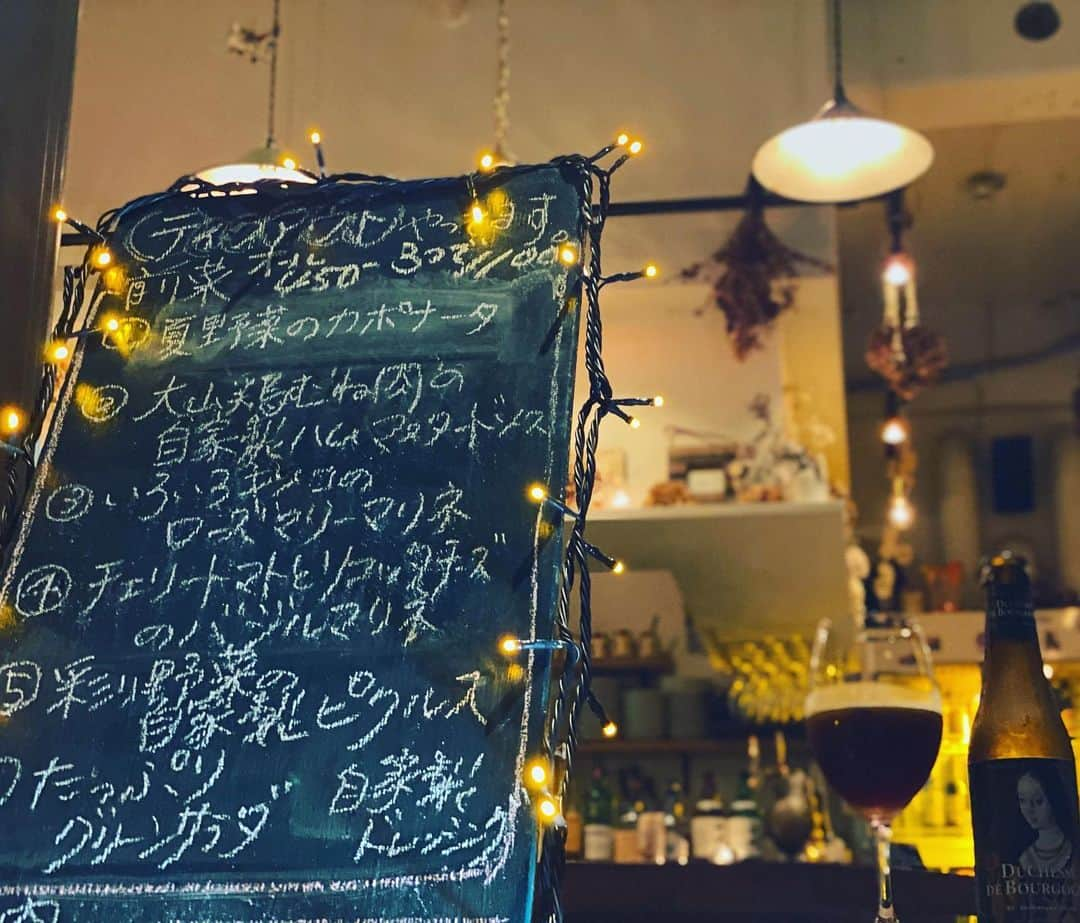 テイクアウトもやってます。
前菜 オール 650- 3コ
①夏野菜のカポナータ
② 大山鶏むね肉の
自家製ハム マスタードソース
③ いろいろキノコの
ローズマリーマリネ
④ チェリートマトとリコッタチーズ
のバジルマリネ
⑤ 彩り野菜の
自家製ピクルス
たっぷり 自家製
グリーンサラダ ドレッシング
DUCHESSE
DE BOURGOGNE